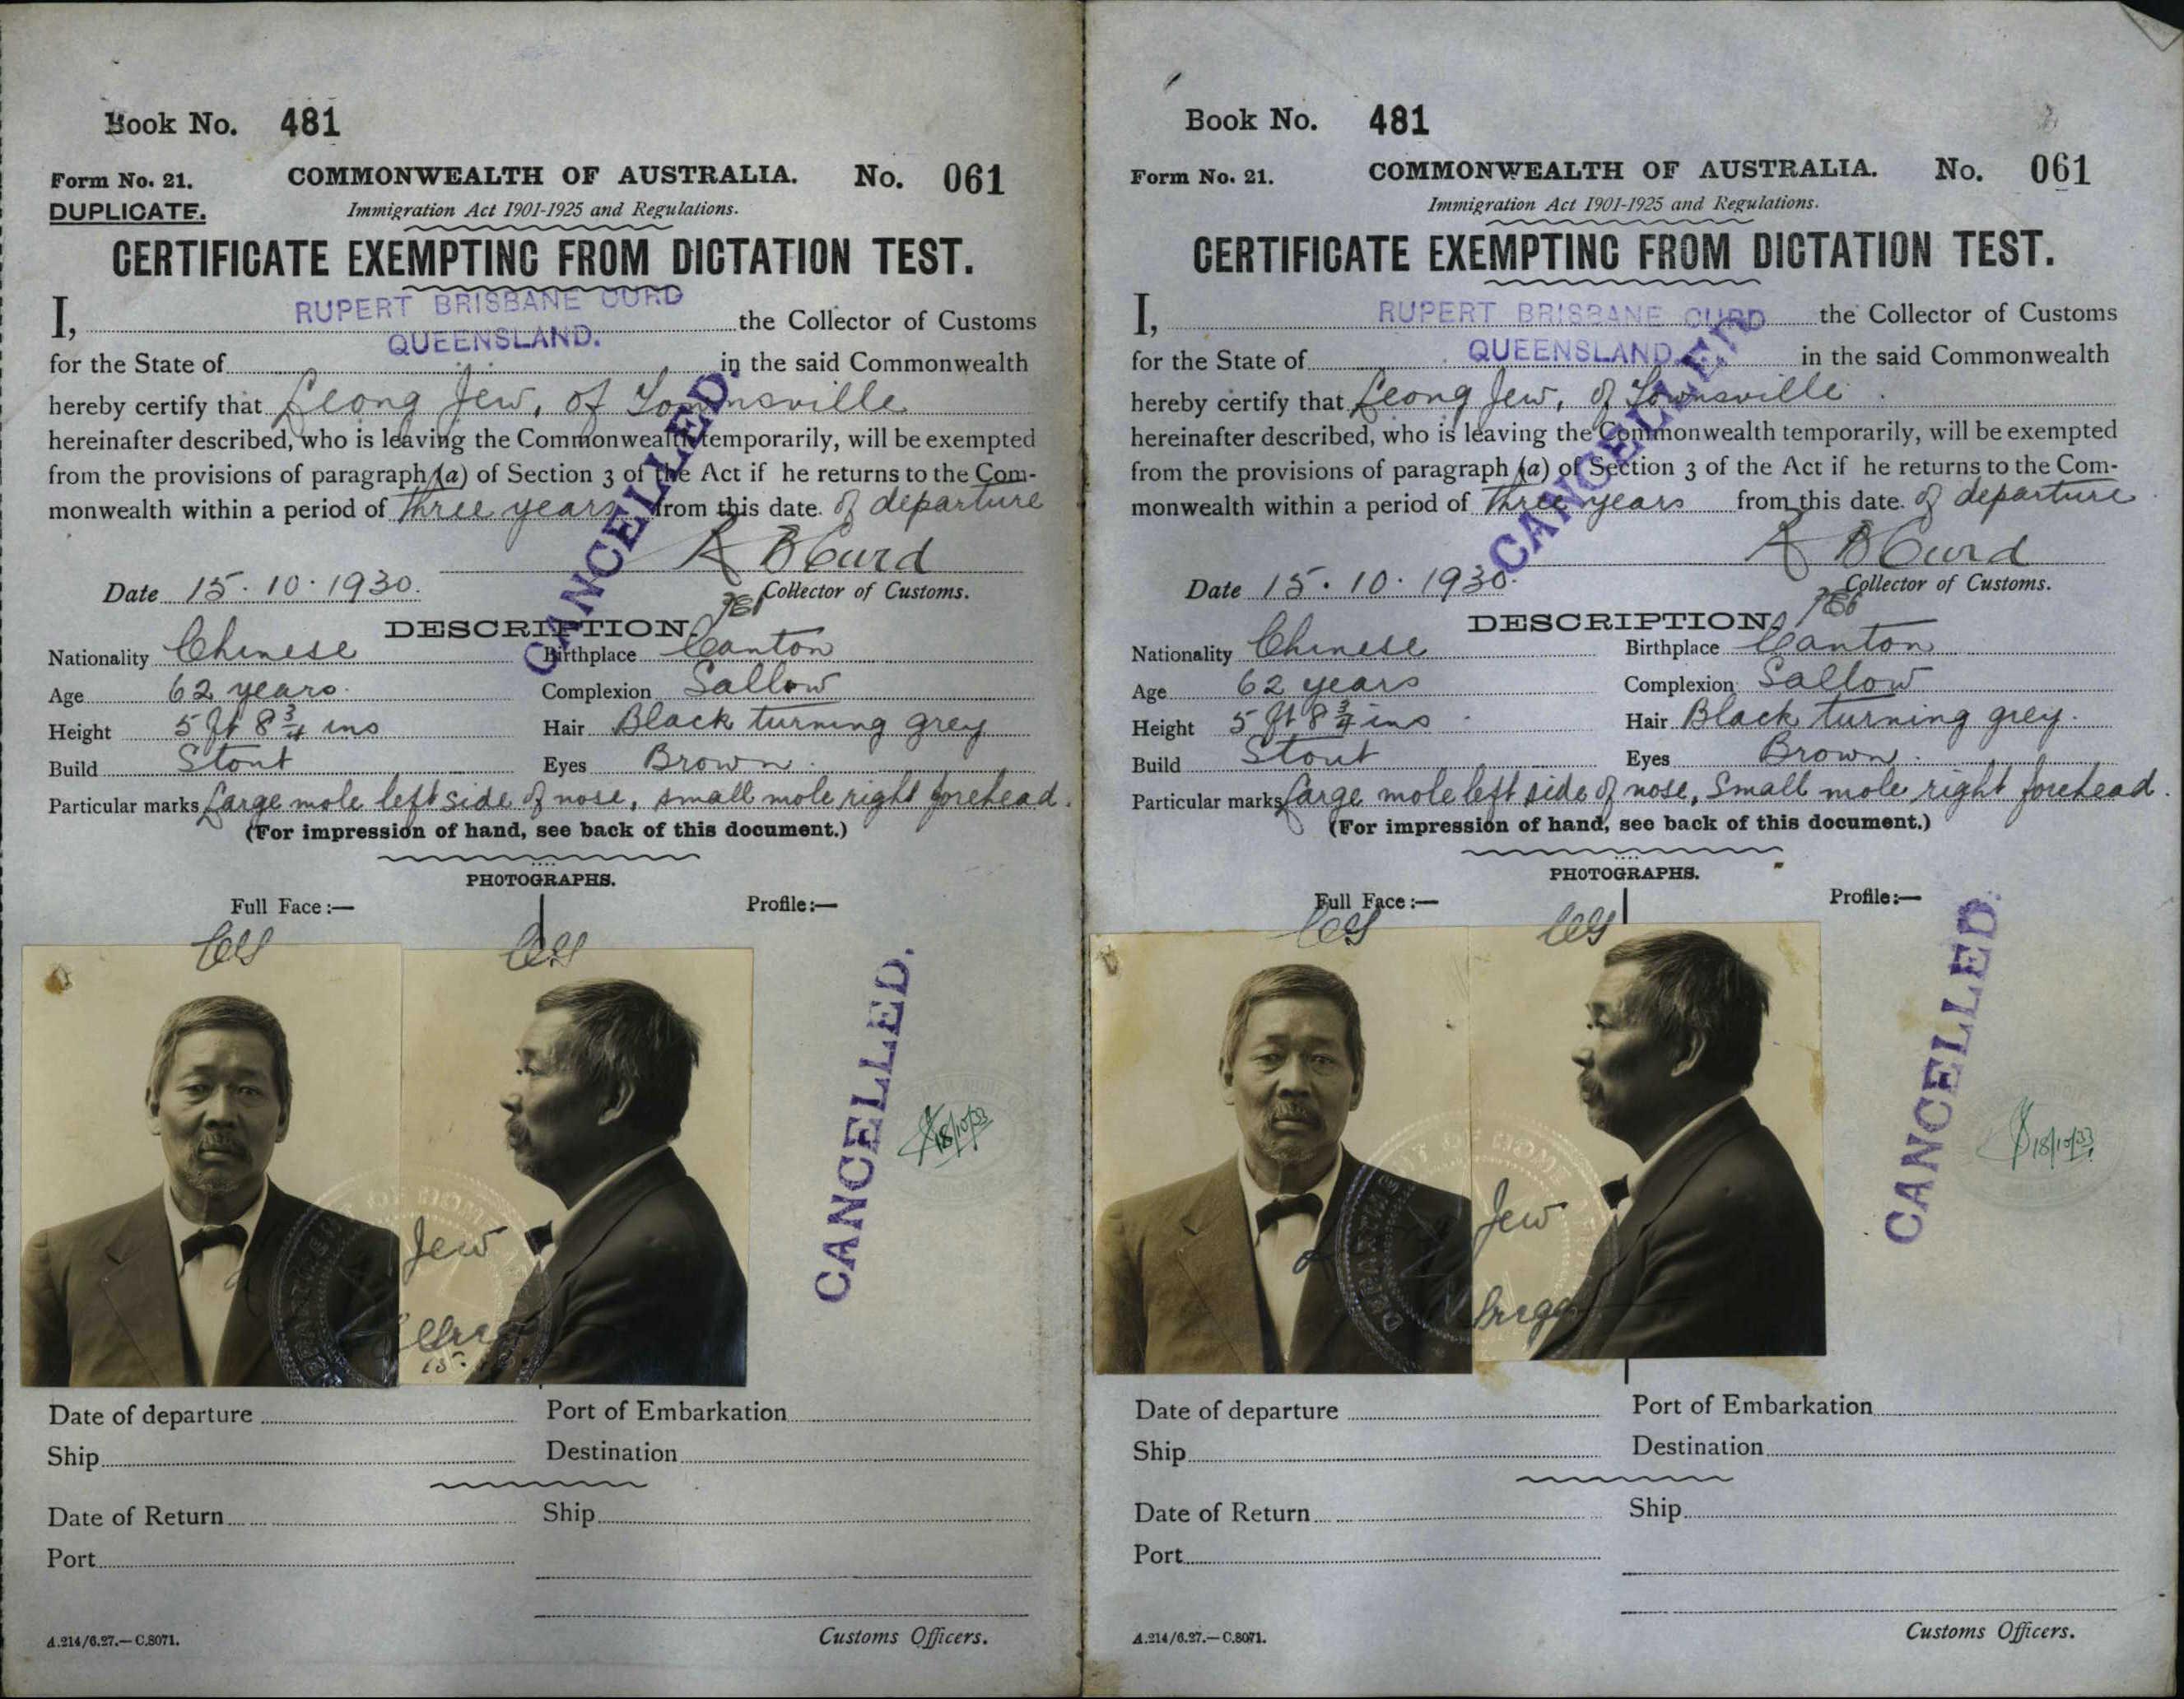 Book No. 481
Form No. 21. COMMONWEALTH OF AUSTRALIA. No. 061
DUPLICATE. Immigration Act 1901-1925 and Regulations.
CERTIFICATE EXEMPTING FROM DICTATION TEST.
RUPERT BRISBANE CURD
I, the Collector of Customs
QUEENSLAND.
for the State of in the said Commonwealth
hereby certify that Leong Jew, of Townsville
hereinafter described, who is leaving the Commonwealth temporarily, will be exempted
from the provisions of paragraph (a) of Section 3 of the Act if he returns to the Com-
monwealth within a period of three years from this date of departure
CANCELLED.
R B Curd
Date 15.10.1930. Collector of Customs.
DESCRIPTION.
Nationality Chinese Birthplace Canton
Age 62 years. Complexion Sallow
Height 5 ft 8 3/4 ins Hair Black turning grey
Build Stout Eyes Brown.
Particular marks Large mole left side of nose, small mole right forehead.
(For impression of hand, see back of this document.)
PHOTOGRAPHS.
Full Face:— Profile:—
CANCELLED.
18/10/33
Jew
Date of departure Port of Embarkation
Ship Destination
Date of Return Ship
Port
A.214/6.27.—C.8071. Customs Officers.
Book No. 481
Form No. 21. COMMONWEALTH OF AUSTRALIA. No. 061
Immigration Act 1901-1925 and Regulations.
CERTIFICATE EXEMPTING FROM DICTATION TEST.
RUPERT BRISBANE CURD
I, the Collector of Customs
QUEENSLAND.
for the State of in the said Commonwealth
hereby certify that Leong Jew, of Townsville
hereinafter described, who is leaving the Commonwealth temporarily, will be exempted
from the provisions of paragraph (a) of Section 3 of the Act if he returns to the Com-
monwealth within a period of three years from this date of departure
CANCELLED
R B Curd
Date 15.10.1930. Collector of Customs.
DESCRIPTION.
Nationality Chinese Birthplace Canton
Age 62 years Complexion Sallow
Height 5 ft 8 3/4 ins Hair Black turning grey.
Build Stout Eyes Brown.
Particular marks Large mole left side of nose, Small mole right forehead.
(For impression of hand, see back of this document.)
PHOTOGRAPHS.
Full Face:— Profile:—
CANCELLED.
18/10/33
Jew
Date of departure Port of Embarkation
Ship Destination
Date of Return Ship
Port
A.214/6.27.—C.8071. Customs Officers.